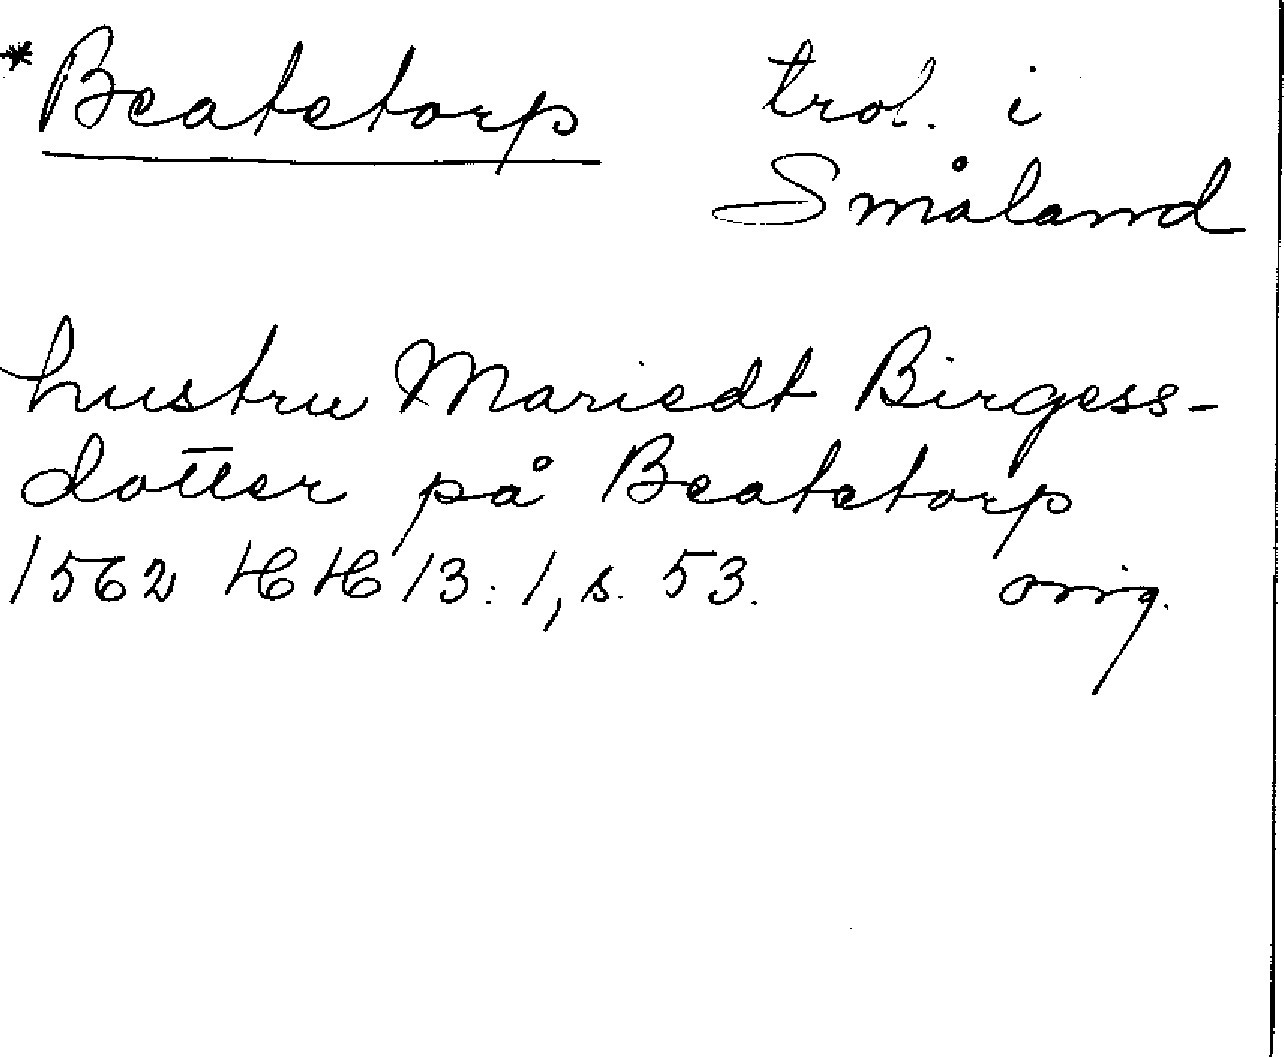 *Beatetorp trol. i
Småland
hustru Mariedt Birgess-
dotter på Beatetorp
1562 HH 13:1, s. 53. orig.